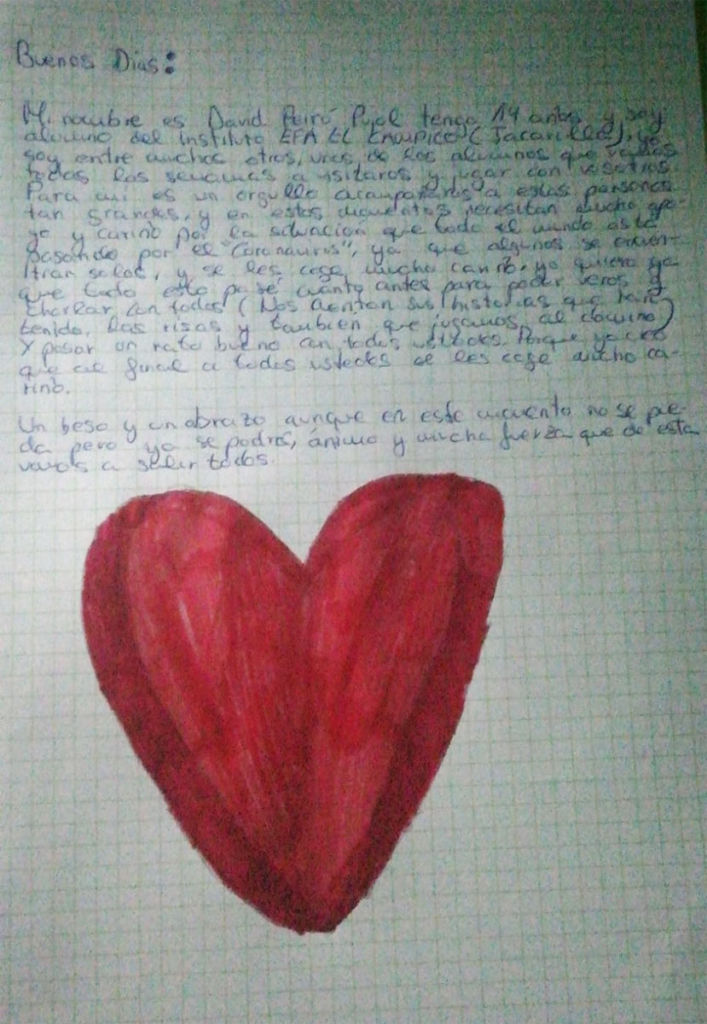 Buenos Dias:
Mi nombre es David Peiró Pujol tengo 14 años y soy
alumno del instituto EFA EL CAMPICO (Jacarilla), yo
soy entre muchos otros, unos de los alumnos que vamos
todas las semanas a visitaros y jugar con vosotros.
Para mi es un orgullo acompañaros a estas personas
tan grandes, y en estos momentos necesitan mucho apo-
yo y cariño por la situación que todo el mundo está
pasando por el "Coronavirus", ya que algunos se encuen-
tran solos, y se les coge mucho cariño, yo quiero ya
que todo esto pase cuanto antes para poder veros y
charlar con todos (Nos cuentan sus historias que han
tenido, las risas y tambien que jugamos al domino)
Y pasar un rato bueno con todos ustedes. Porque yo creo
que al final a todos ustedes se les coge mucho ca-
riño.
Un beso y un abrazo aunque en este momento no se pue-
da pero ya se podrá, ánimo y mucha fuerza que de esta
vamos a salir todos.